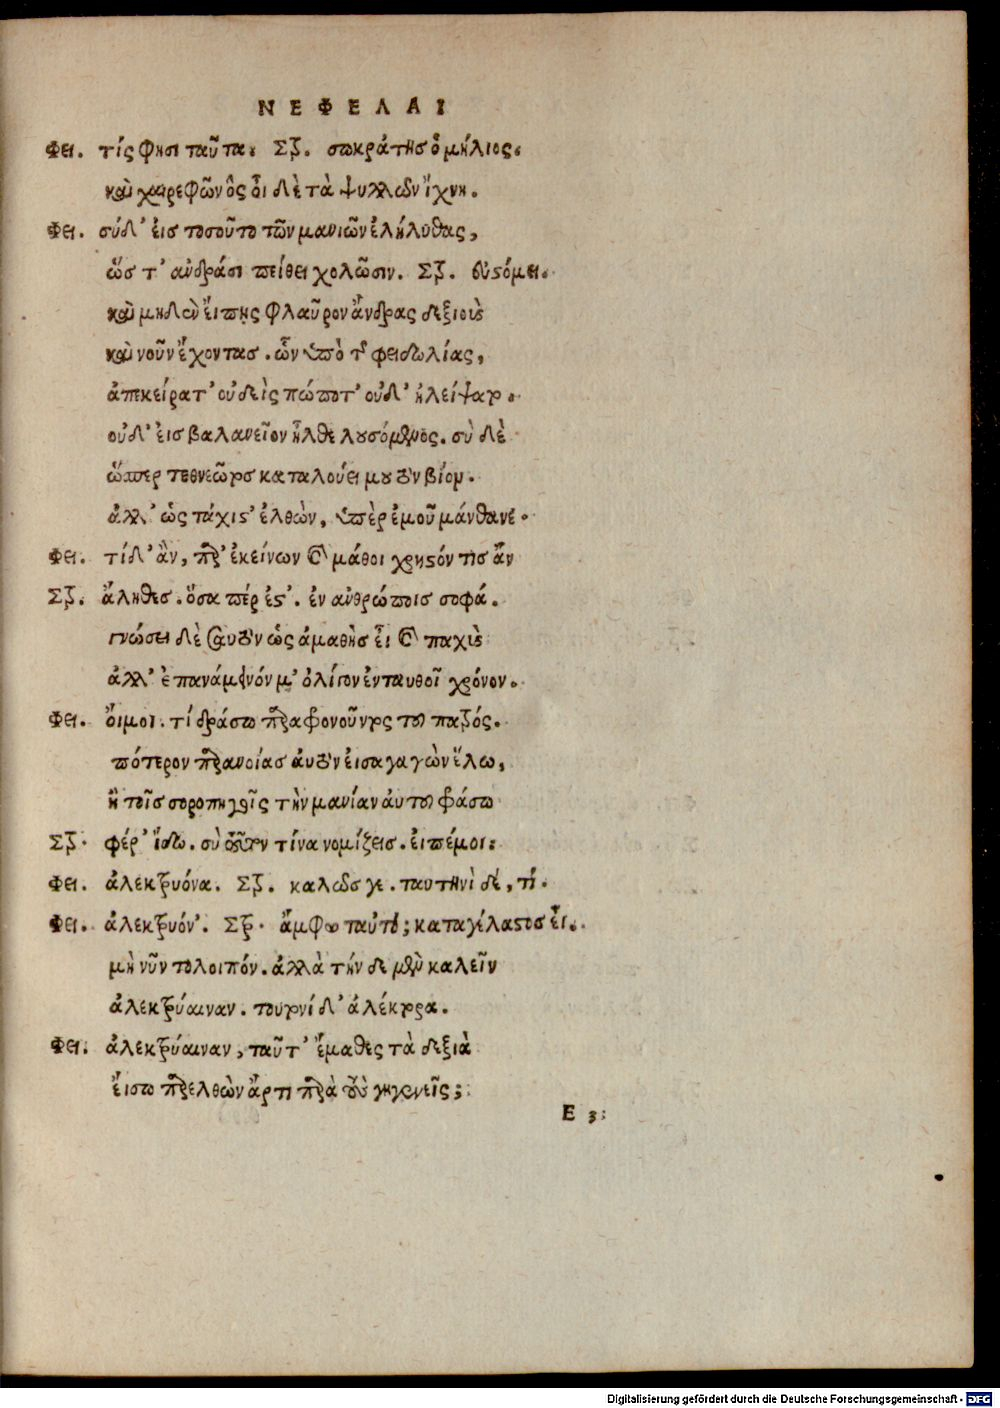 ΝΕΦΕΛΑΙ
Φει. τίς φησι ταῦτα; Στρ. σωκράτης ὁ μήλιος.
καὶ χαιρεφῶν ὃς οἶδε τὰ ψυλλῶν ἴχνη.
Φει. σύ δ' εἰς τοσοῦτο τῶν μανιῶν ἐλήλυθας,
ὥς τ' ἀνδράσι πείθει χολῶσιν. Στρ. εὐστόμει.
καὶ μηδὲν εἴπῃς φλαῦρον ἄνδρας δεξιοὺς
καὶ νοῦν ἔχοντας. ὧν ὑπὸ τῆς φειδωλίας,
ἀπεκείρατ' οὐδεὶς πώποτ' οὐδ' ἠλείψατο.
οὐδ' εἰς βαλανεῖον ἦλθε λουσόμενος. σὺ δὲ
ὥσπερ τεθνεῶτος καταλούει μου τὸν βίον.
ἀλλ' ὡς τάχιστ' ἐλθὼν, ὑπὲρ ἐμοῦ μάνθανε.
Φει. τί δ' ἂν, παρ' ἐκείνων καὶ μάθοι χρηστόν τις ἄν
Στρ. ἄληθες. ὅσα πέρ ἐστ'. ἐν ἀνθρώποις σοφά.
γνώσει δὲ σαυτὸν ὡς ἀμαθὴς εἶ καὶ παχὺς
ἀλλ' ἐπανάμεινόν μ' ὀλίγον ἐνταυθοῖ χρόνον.
Φει. οἴμοι. τί δράσω παραφρονοῦντος τοῦ πατρός.
πότερον παρανοίας αὐτὸν εἰσαγαγὼν ἕλω,
ἢ τοῖς σοροπηγοῖς τὴν μανίαν αὐτοῦ φράσω
Στρ. φέρ' ἴδω. σὺ τοῦτον τίνα νομίζεις. εἰπέ μοι:
Φει. ἀλεκτρυόνα. Στρ. καλῶς γε. ταυτηνὶ δέ, τί.
Φει. ἀλεκτρυόν'. Στρ. ἄμφω ταὐτό; καταγέλαστος εἶ.
μὴ νῦν τολοιπόν. ἀλλὰ τήν δε μὲν καλεῖν
ἀλεκτρύαιναν. τουτονί δ' ἀλέκτορα.
Φει. ἀλεκτρύαιναν, ταῦτ' ἔμαθες τὰ δεξιὰ
εἴσω παρελθὼν ἄρτι παρὰ τοὺς γηγενεῖς;
Ε 3
Digitalisierung gefördert durch die Deutsche Forschungsgemeinschaft - DFG